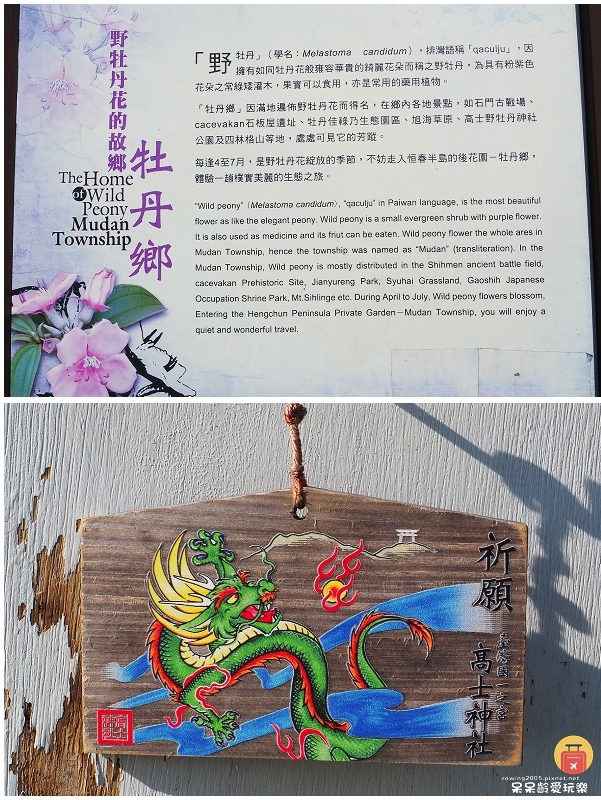 野牡丹花的故鄉
牡丹鄉
The Home
of Wild
Peony
Mudan
Township
「野牡丹」（學名：Melastoma candidum），排灣語稱「qaculju」，因
擁有如同牡丹花般雍容華貴的綺麗花朵而稱之野牡丹，為具有粉紫色
花朵之常綠矮灌木，果實可以食用，亦是常用的藥用植物。
「牡丹鄉」因滿地遍佈野牡丹花而得名，在鄉內各地景點，如石門古戰場、
cacevakan石板屋遺址、牡丹佳綠乃生態園區、旭海草原、高士野牡丹神社
公園及四林格山等地，處處可見它的芳蹤。
每逢4至7月，是野牡丹花綻放的季節，不妨走入恒春半島的後花園－牡丹鄉，
體驗一趟樸實美麗的生態之旅。
"Wild peony" (Melastoma candidum), "qaculju" in Paiwan language, is the most beautiful
flower as like the elegant peony. Wild peony is a small evergreen shrub with purple flower.
It is also used as medicine and its friut can be eaten. Wild peony flower the whole ares in
Mudan Township, hence the township was named as "Mudan" (transliteration). In the
Mudan Township, Wild peony is mostly distributed in the Shihmen ancient battle field,
cacevakan Prehistoric Site, Jianyureng Park, Syuhai Grassland, Gaoshih Japanese
Occupation Shrine Park, Mt.Sihlinge etc. During April to July, Wild peony flowers blossom,
Entering the Hengchun Peninsula Private Garden－Mudan Township, you will enjoy a
quiet and wonderful travel.
祈願
高士神社
rowing2005.pixnet.net
呆呆齡愛玩樂